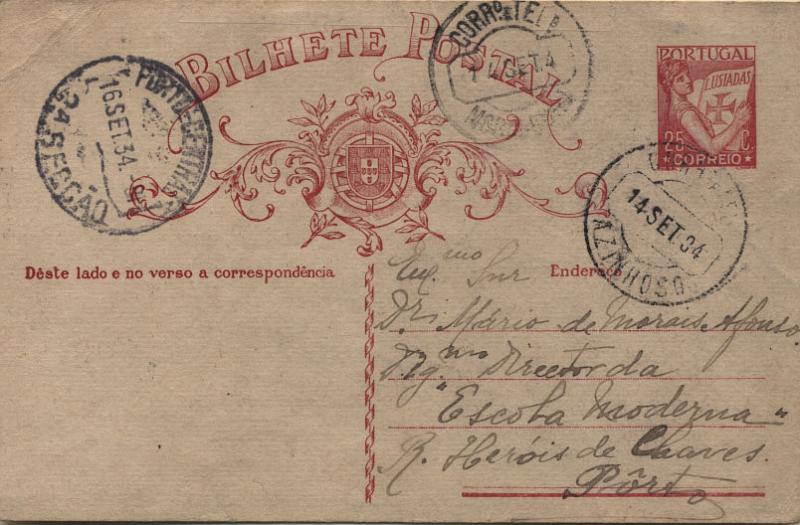 BILHETE POSTAL
PORTUGAL
LUSIADAS
25 C.
CORREIO
PORTO-CENTRAL
16 SET. 34.
3A SECÇÃO
CORRO. E TELA
SET. 4
14 SET. 34
AZINHOSO
Dêste lado e no verso a correspondência
Endereço
Exmo Snr
Dr. Mário de Morais Afonso
Dgmo Director da
"Escola Moderna"
R. Heróis de Chaves.
Pôrto